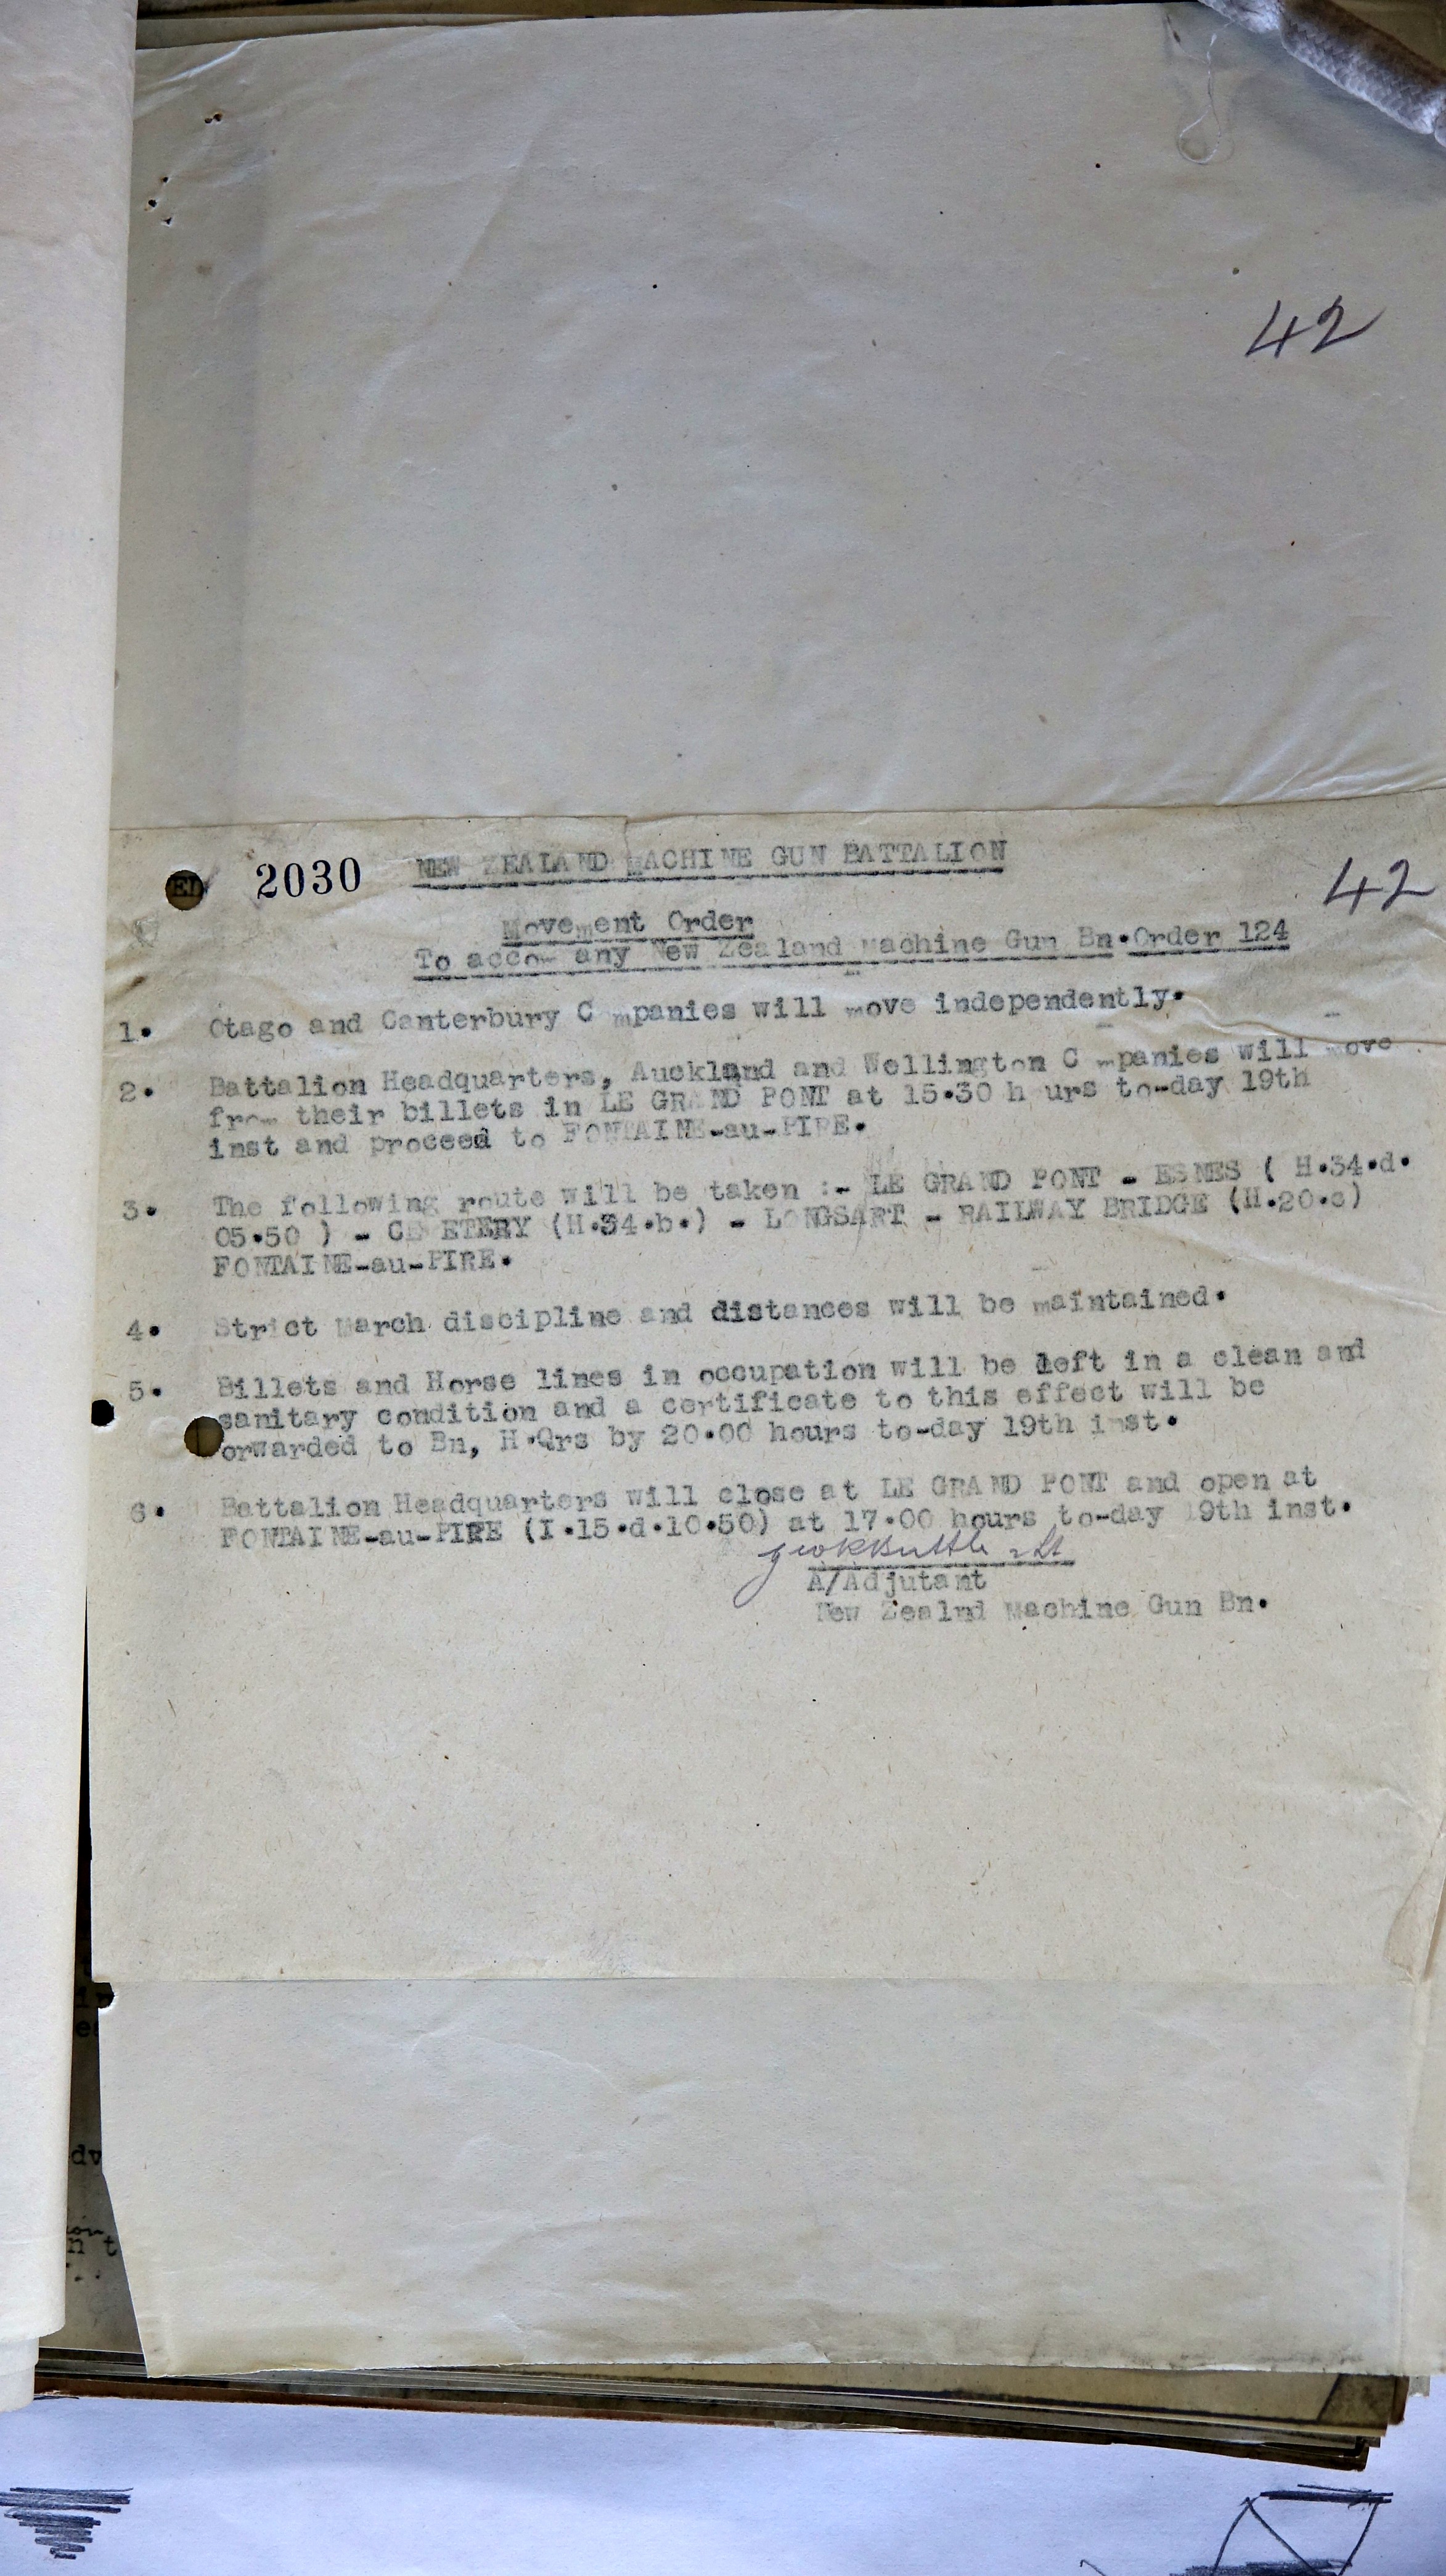 42
2030 NEW ZEALAND MACHINE GUN BATTALION
42
Movement Order
To accompany New Zealand Machine Gun Bn.Order 124
1. Otago and Canterbury Companies will move independently.
2. Battalion Headquarters, Auckland and Wellington Companies will move
from their billets in LE GRAND PONT at 15.30 hours to-day 19th
inst and proceed to FONTAINE-au-PIRE.
3. The following route will be taken :- LE GRAND PONT - ESNES ( H.34.d.
05.50 ) - CEMETERY (H.34.b.) - LONGSART - RAILWAY BRIDGE (H.20.c)
FONTAINE-au-PIRE.
4. Strict March discipline and distances will be maintained.
5. Billets and Horse lines in occupation will be left in a clean and
sanitary condition and a certificate to this effect will be
orwarded to Bn, H.Qrs by 20.00 hours to-day 19th inst.
6. Battalion Headquarters will close at LE GRAND PONT and open at
FONTAINE-au-PIRE (I.15.d.10.50) at 17.00 hours to-day 19th inst.
A/Adjutant
New Zealnd Machine Gun Bn.